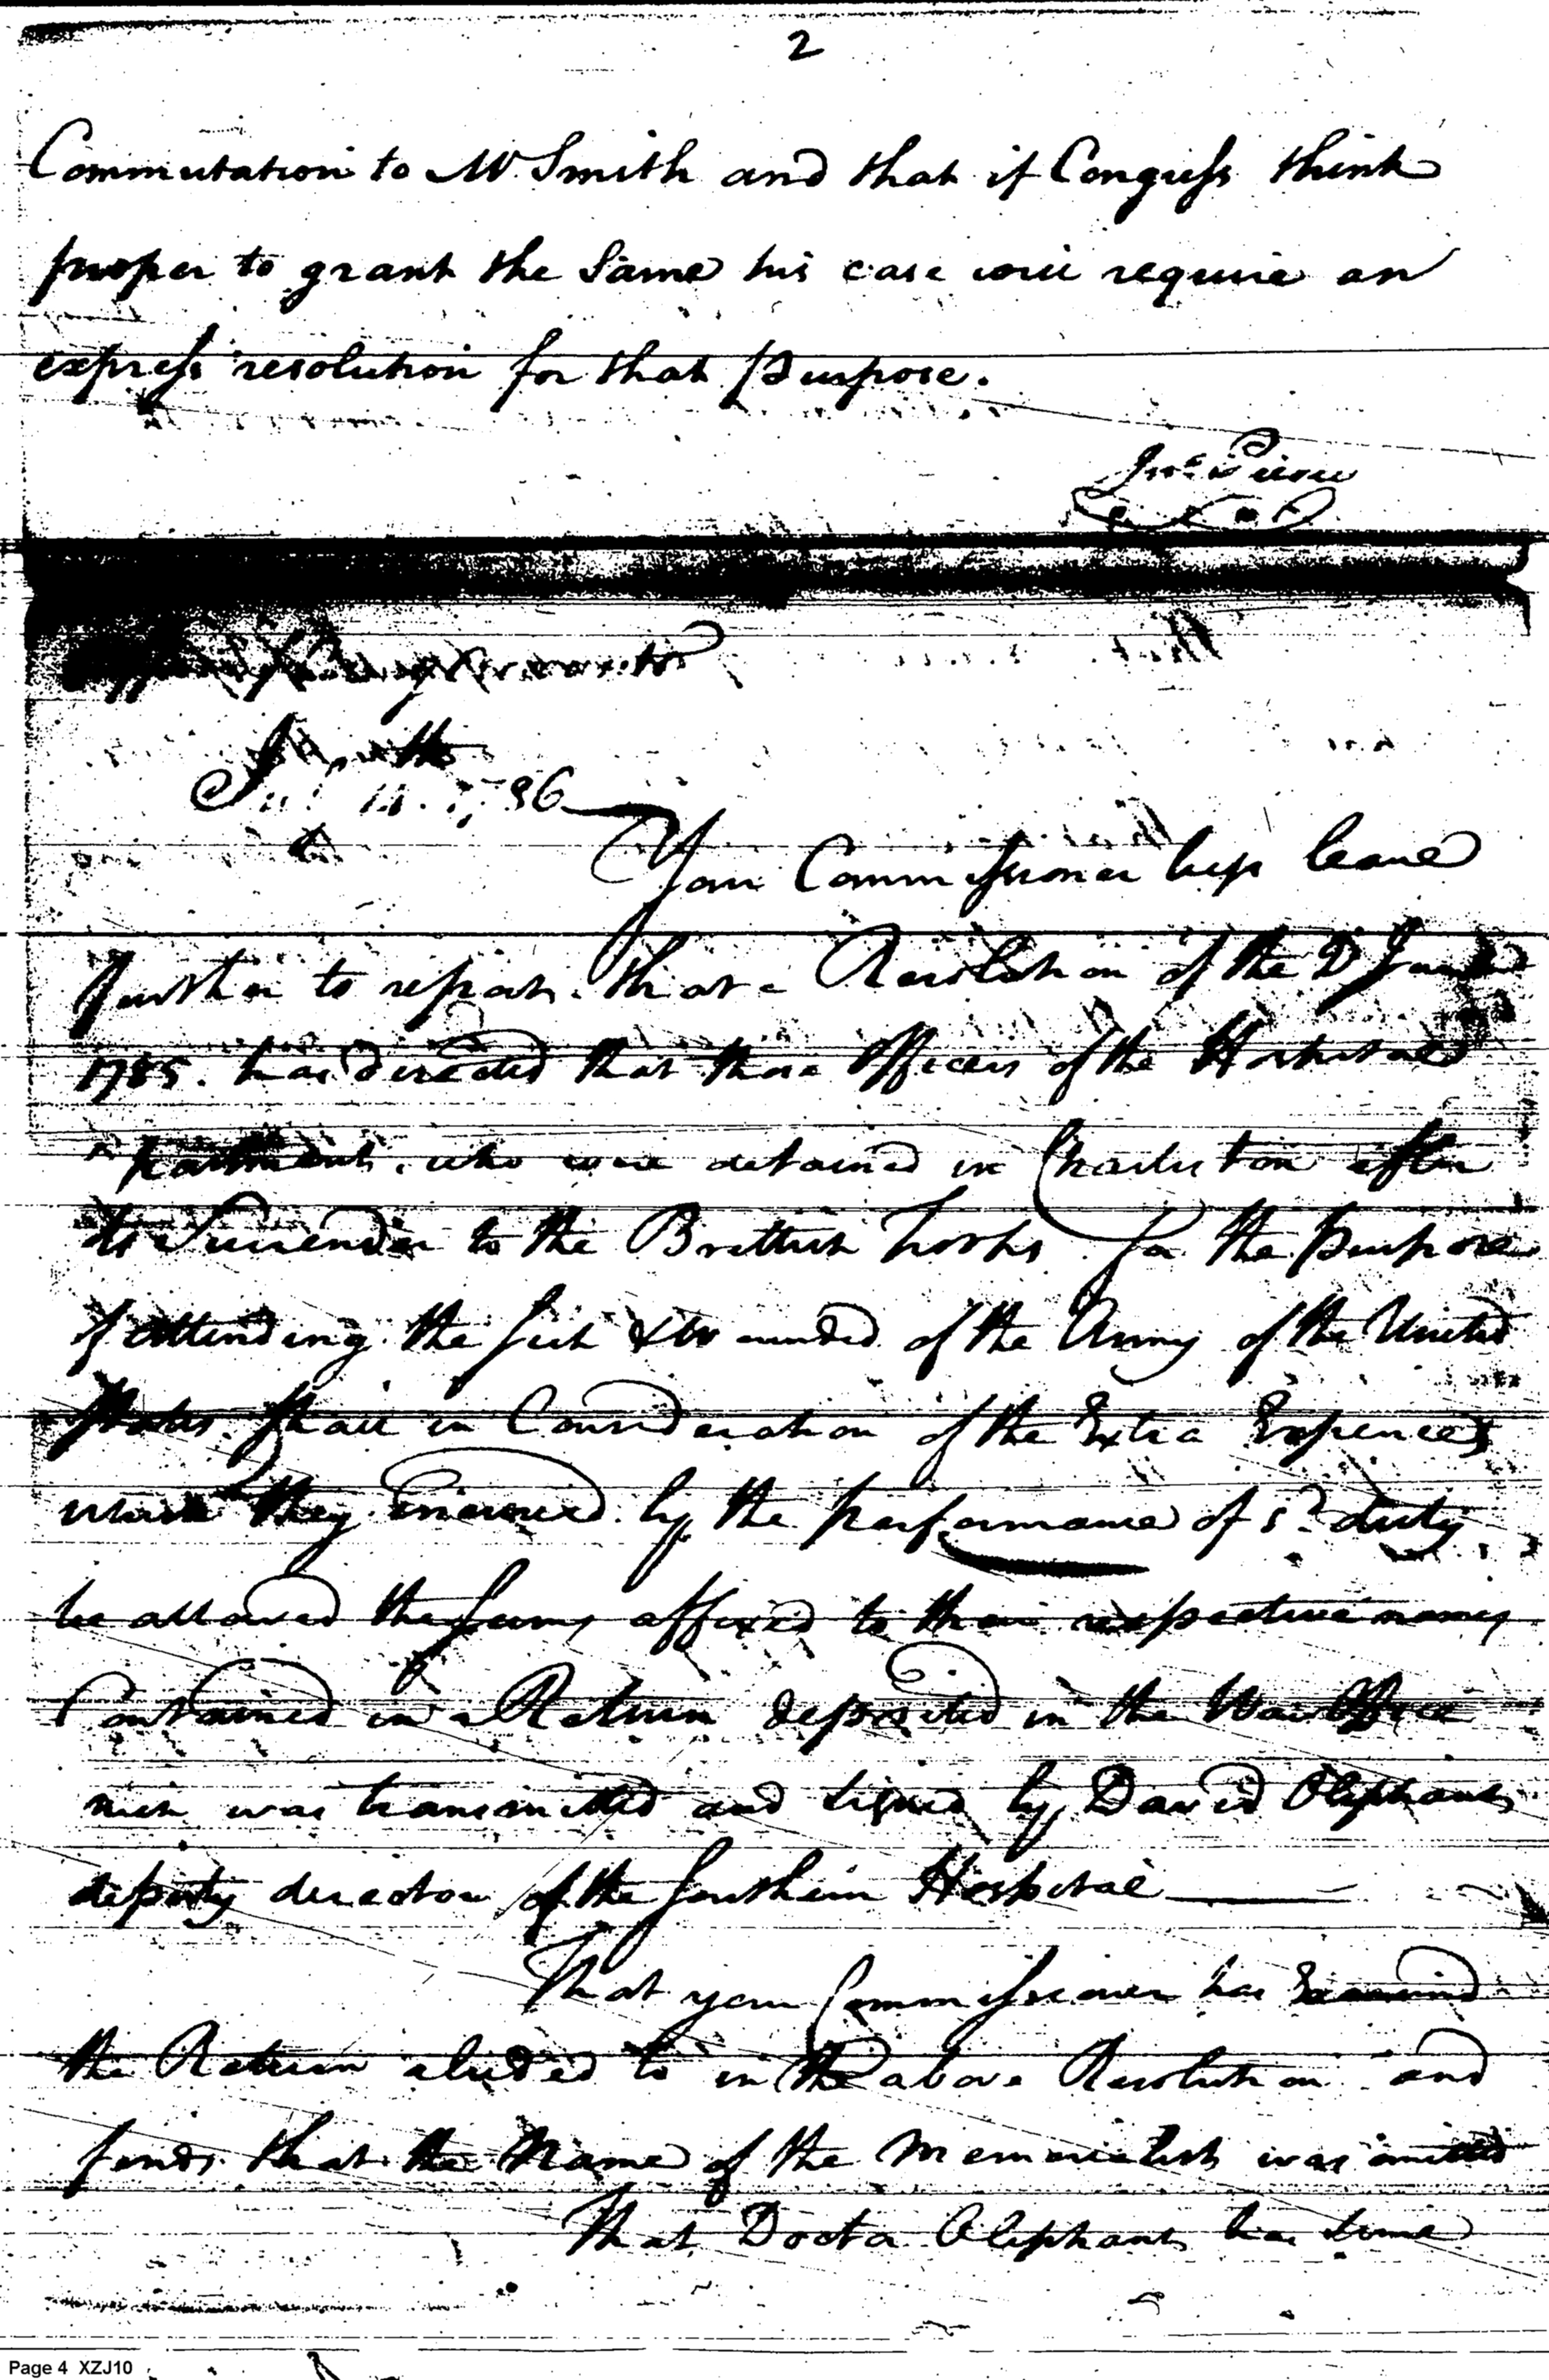 2
Commutation to Mr Smith and that if Congress think
proper to grant the Same his case will require an
express resolution for that Purpose.
Jno Pierce
Smith
14. 1786
Your Commissioner begs leave
further to report. that a Resolution of the 2d
1785. has directed that those Officers of the Hospital
who were detained in Charleston after
its Surrender to the Brittish Troops for the Purpose
of attending the Sick & Wounded of the Army of the United
States. shall in Consideration of the Extra Expences
which they incurred by the performance of sd. duty
be allowed the sums affixed to their respective names
Contained in a Return deposited in the War Office
wich was transmitted and signed by David Oliphant
deputy director of the Southern Hospital
That your Commissioner has Examined
the Return aluded to in the above Resolution and
finds that the Name of the Memorialist was omitted
That Doctor Oliphant has since
Page 4 XZJ10